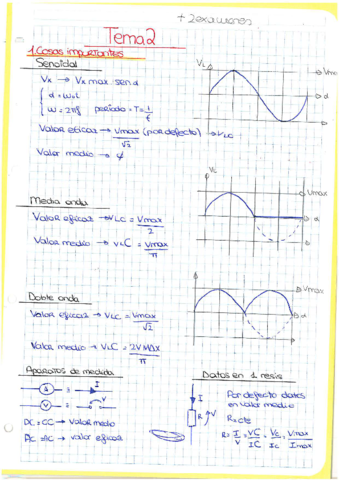 + 2 examenes
Tema 2
1. Cosas importantes
Senoidal
Vx → Vx max sen α
α = ωt
ω = 2πf periodo → T = 1/f
Valor eficaz → Vmax/√2 (por defecto) → VLC
Valor medio → 
VL
Vmax
α
Media onda
Valor eficaz → VLC = Vmax/2
Valor medio → VLC = Vmax/π
VL
Vmax
α
Doble onda
Valor eficaz → VLC = Vmax/√2
Valor medio → VLC = 2VMAX/π
Vmax
α
Aparatos de medida
A = I
V = V
DC = CC → Valor medio
AC = AC → valor eficaz
Datos en 1 resis
I
R V
Por defecto datos
en valor medio
R = cte
R = I/V = VC/IC = Vc/Ic = Vmax/Imax